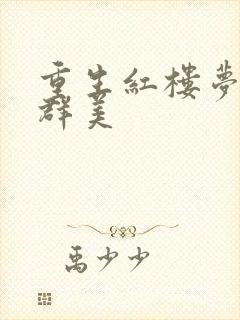 重生紅樓夢
群美
禹少少